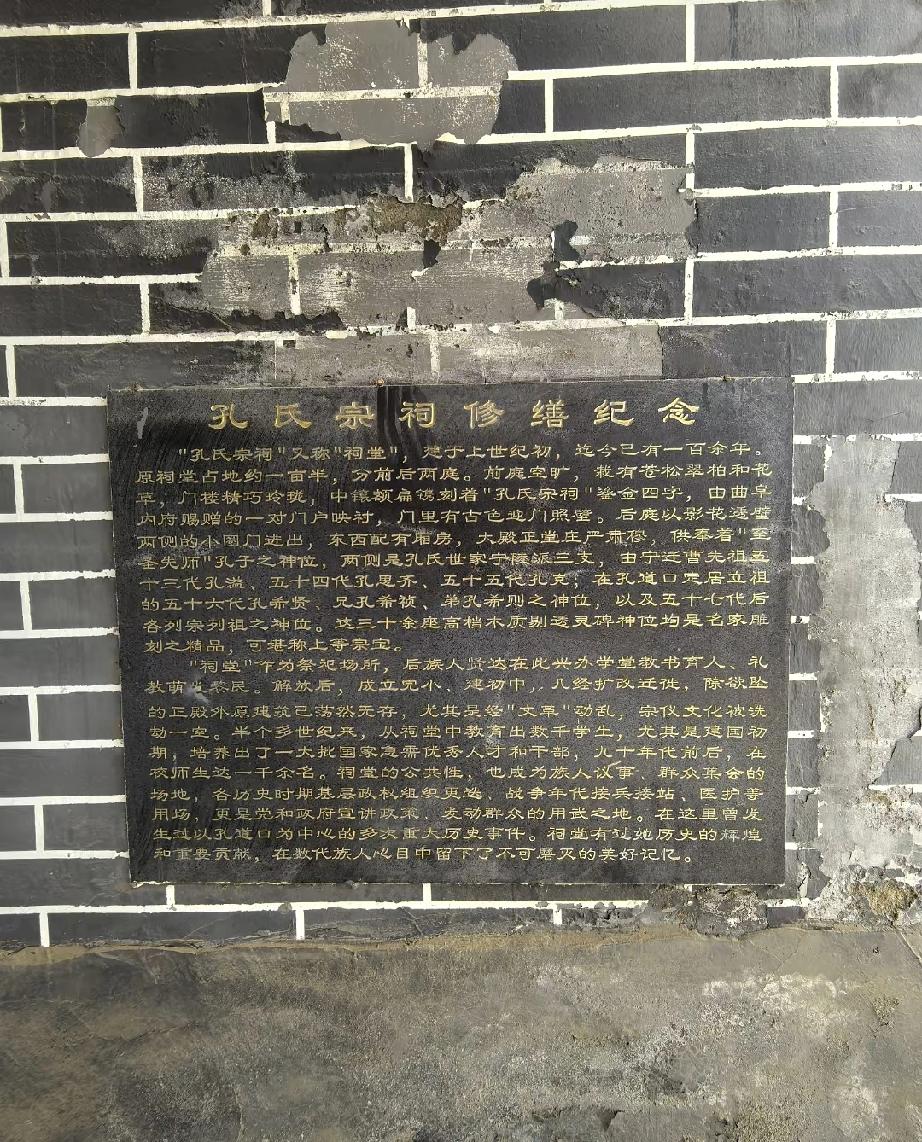 孔氏宗祠修缮纪念
"孔氏宗祠"又称"祠堂"，建于上世纪初，迄今已有一百余年。
原祠堂占地约一亩半，分前后两庭。前庭空旷，栽有苍松翠柏和花
草，门楼精巧玲珑，中镶额扁镌刻着"孔氏宗祠"鎏金四字，由曲阜
内府赐赠的一对门户映衬，门里有古色迎门照壁。后庭以影花透壁
两侧的小圆门进出，东西配有厢房，大殿正堂庄严肃穆，供奉着"至
圣先师"孔子之神位，两侧是孔氏世家宁陵派三支，由宁迁曹先祖五
十三代孔渊、五十四代孔思齐、五十五代孔克；在孔道口定居立祖
的五十六代孔希贤、兄孔希祯、弟孔希则之神位，以及五十七代后
各列宗列祖之神位。这三十余座高档木质剔透灵碑神位均是名家雕
刻之精品，可堪称上等宗宝。
"祠堂"作为祭祀场所，后族人贤达在此兴办学堂教书育人、礼
教萌生黎民。解放后，成立完小、建初中，几经扩改迁徙，除欲坠
的正殿外原建筑已荡然无存，尤其是经"文革"动乱，宗仪文化被洗
劫一空。半个多世纪来，从祠堂中教育出数千学生，尤其是建国初
期，培养出了一大批国家急需优秀人才和干部，九十年代前后，在
校师生达一千余名。祠堂的公共性，也成为族人议事、群众集会的
场地，各历史时期基层政权组织更迭，战争年代接兵接站、医护等
用场，更是党和政府宣讲政策、发动群众的用武之地。在这里曾发
生过以孔道口为中心的多次重大历史事件。祠堂有过她历史的辉煌
和重要贡献，在数代族人心目中留下了不可磨灭的美好记忆。